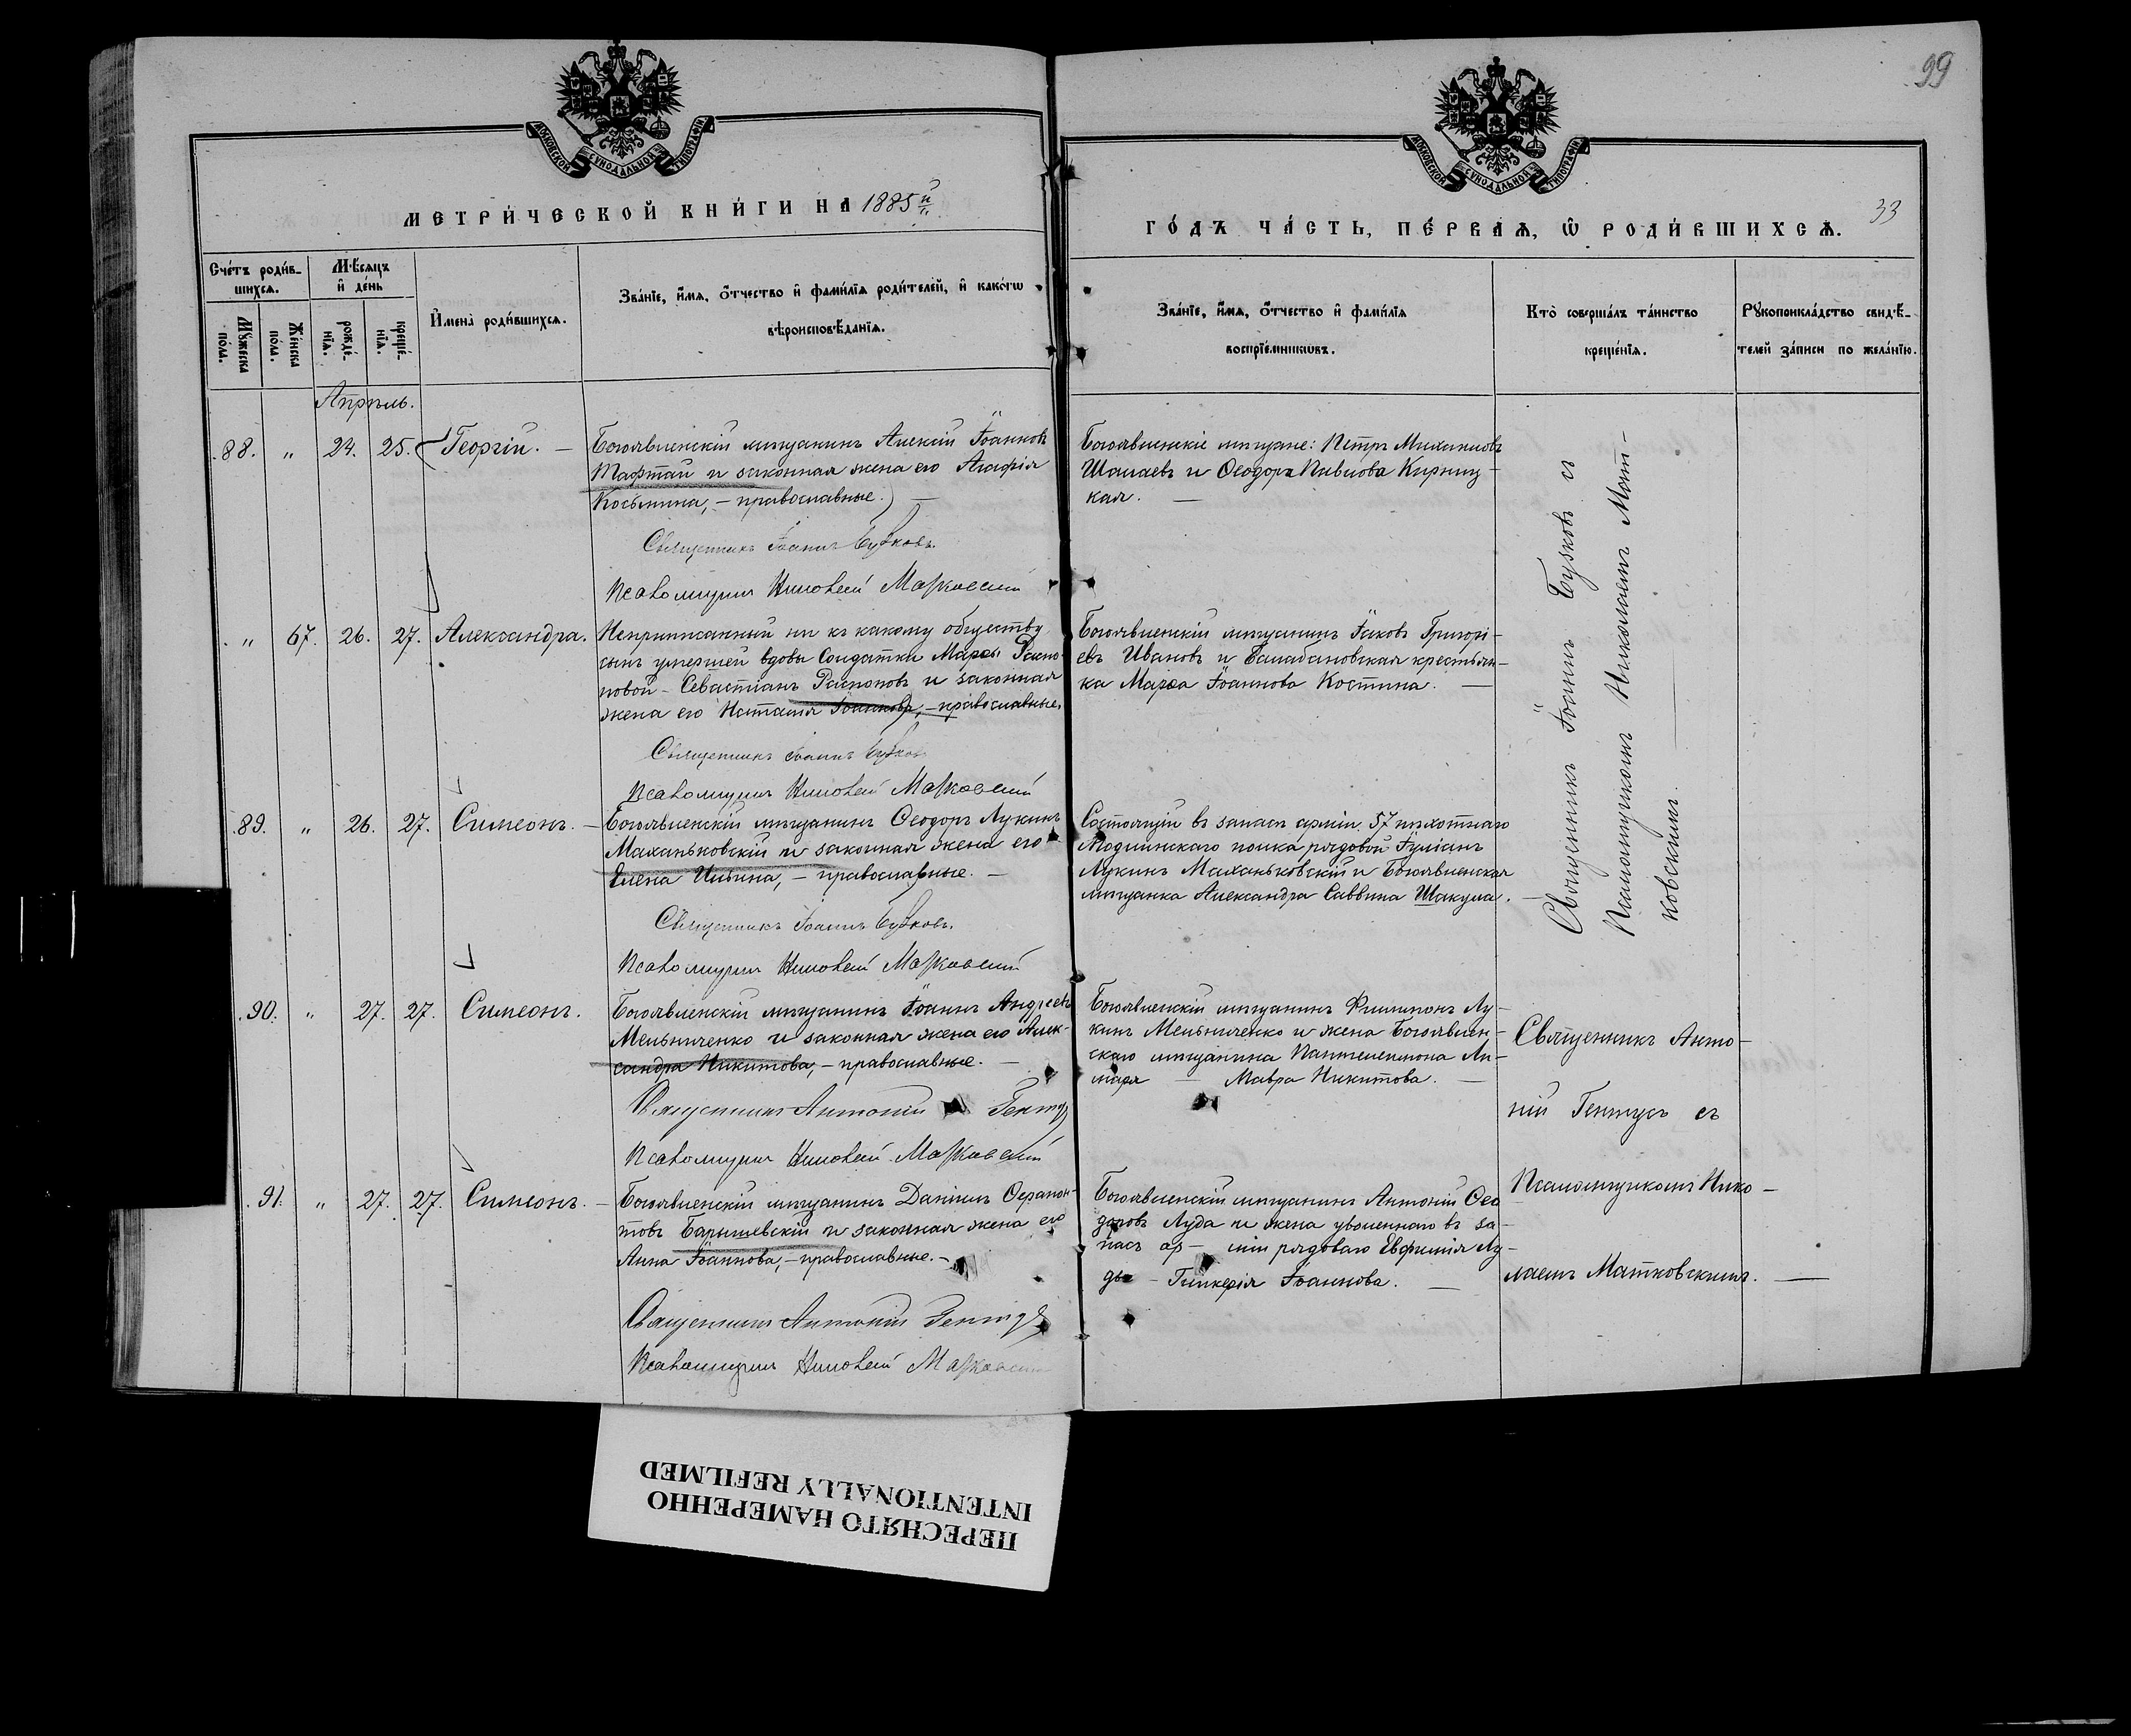 99
МОСКОВСКОЙ СУНОДАЛЬНОЙ ТИПОГРАФІИ
МОСКОВСКОЙ СУНОДАЛЬНОЙ ТИПОГРАФІИ
МЕТРИ́ЧЕСКОЙ КНИ́ГИ НА 1885й
ГО́ДЪ ЧА́СТЬ, ПЕ́РВАѦ, Ѿ РОДИ́ВШИХСѦ.
33
Сче́тъ роди́в-
шихсѧ.
Мѣ́сѧцъ
и҆ де́нь
Мꙋ́жеска
по́ла.
Же́нска
по́ла.
рожде́-
нїѧ.
креще́-
нїѧ.
И҆мена̀ роди́вшихсѧ.
Зва́нїе, и҆́мѧ, ѻ҆́тчество и҆ фами́лїѧ роди́телей, и҆ како́гѡ
вѣроисповѣ́данїѧ.
Зва́нїе, и҆́мѧ, ѻ҆́тчество и҆ фами́лїѧ
воспрїе́мникѡвъ.
Кто̀ соверша́лъ та́инство
креще́нїѧ.
Рꙋкоприкла́дство свидѣ́-
телей за́писи по жела́нїю.
Апрѣль.
88. " 24. 25. Георгій. —
Богоявленскій мѣщанинъ Алексій Іоанновъ
Тафтай и законная жена его Агафія
Косьмина, — православные. —
Священникъ Іоаннъ Бузковъ.
Псаломщикъ Николай Матковскій
Богоявленскіе мѣщане: Петръ Михаиловъ
Шалаевъ и Ѳеодора Павлова Кирниц-
кая. —
" 67. 26. 27. Александра.
Неприписанный ни къ какому обществу
сынъ умершей вдовы Солдатки Марѳы Распо-
повой — Севастіанъ Распоповъ и законная
жена его Наталія Іоаннова, — православные.
Священникъ Іоаннъ Бузковъ
Псаломщикъ Николай Матковскій
Богоявленскій мѣщанинъ Іаковъ Григорі-
евъ Ивановъ и Балабановская крестьян-
ка Марѳа Іоаннова Костина. —
89. " 26. 27. Симеонъ. —
Богоявленскій мѣщанинъ Ѳеодоръ Лукинъ
Маханьковскій и законная жена его
Елена Ильина, — православные. —
Священникъ Іоаннъ Бузковъ.
Псаломщикъ Николай Матковскій
Состоящій въ запасѣ арміи 57 пѣхотнаго
Модлинскаго полка рядовой Іуліанъ
Лукинъ Маханьковскій и Богоявленская
мѣщанка Александра Саввина Шакула.
Священникъ Іоаннъ Бузковъ съ
Псаломщикомъ Николаемъ Мат-
ковскимъ. —
90. " 27. 27. Симеонъ.
Богоявленскій мѣщанинъ Іоаннъ Андреевъ
Мельниченко и законная жена его Алек-
сандра Никитова, — православные. —
Священникъ Антоній
Псаломщикъ Николай Матковскій
Богоявленскій мѣщанинъ Филимонъ Лу-
кинъ Мельниченко и жена Богоявлен-
скаго мѣщанина Пантелеимона Ли-
маря — Мавра Никитова. —
Священникъ Анто-
ній съ
Псаломщикомъ Нико-
лаемъ Матковскимъ. —
91. " 27. 27. Симеонъ. —
Богоявленскій мѣщанинъ Даніилъ Ѳерапон-
товъ Барышевскій и законная жена его
Анна Іоаннова, — православные. —
Священникъ Антоній
Псаломщикъ Николай Матковскій
Богоявленскій мѣщанинъ Антоній Ѳео-
доровъ Луда и жена уволеннаго въ за-
пасъ ар — міи рядоваго Евфимія Лу-
ды — Гликерія Іоаннова. —
ПЕРЕСНЯТО НАМЕРЕННО
INTENTIONALLY REFILMED